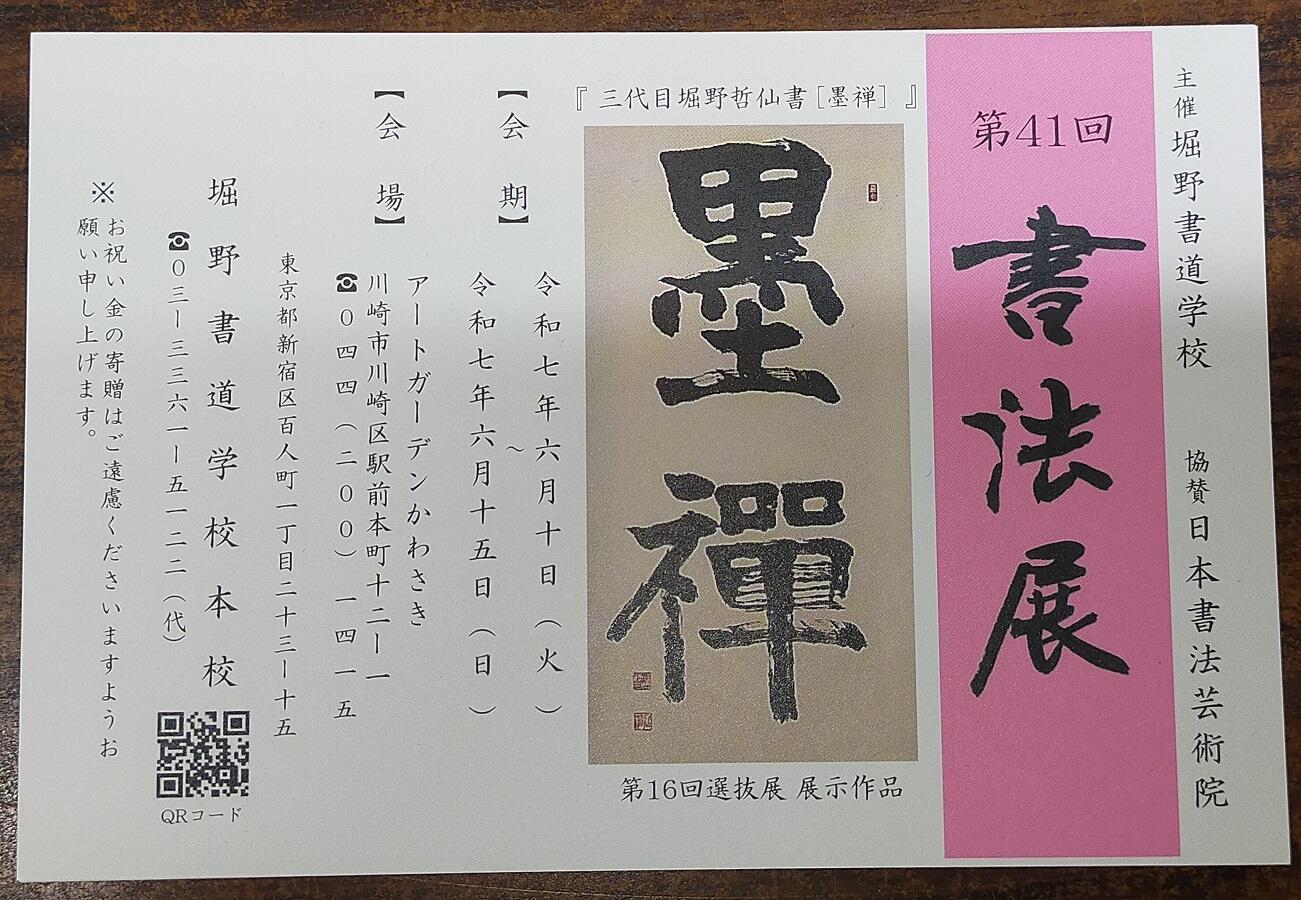 主催 堀野書道学校 協賛 日本書法芸術院
第41回
書法展
『三代目堀野哲仙書［墨禅］』
墨禪
第16回選抜展 展示作品
【会 期】 令和七年六月十日（火）
～
令和七年六月十五日（日）
【会 場】 アートガーデンかわさき
川崎市川崎区駅前本町十二ー一
☎０四四（二００）一四一五
東京都新宿区百人町一丁目二十三ー十五
堀野書道学校本校
☎０三ー三三六一ー五一二二（代）
QRコード
※お祝い金の寄贈はご遠慮くださいますようお
願い申し上げます。